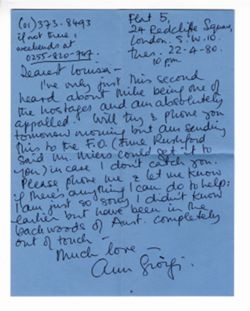 (01) 373-8493
if not there,
weekends at
0255-820-747
Flat 5,
24 Redcliffe Square,
London. S.W.10.
Tues. 22-4-80.
10 pm
Dearest Louisa —
I've only just this second
heard about Mike being one of
the hostages and am absolutely
appalled. Will try & phone you
tomorrow morning but am sending
this to the F.O. (June Rushford
said Mr. Miers could get it to
you) in case I don't catch you.
Please phone me & let me know
if there's anything I can do to help:
I am just so sorry I didn't know
earlier but have been in the
backwoods of Aust. completely
out of touch —
Much love —
Ann Giorgi.